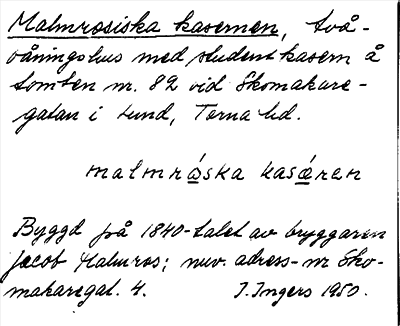 Malmrosiska kasernen, två-
våningshus med studentkasern å
tomten nr. 82 vid Skomakare-
gatan i Lund, Torna hd.
malmrǻska kasǽren
Byggd på 1840-talet av bryggaren
Jacob Malmros; nuv. adress-nr Sko-
makaregat. 4. I. Ingers 1950.